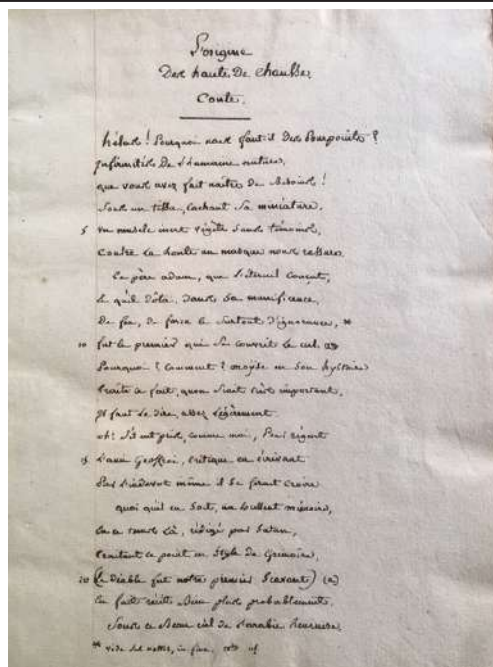 L'origine
Des hauts De chausses
Conte.
hélas ! Pourquoi nous faut-il Des Pourpoints ?
Infirmités De l'humaine nature,
que vous avez fait naître de Besoins !
Sous un tissu, cachant Sa miniature,
5 un muscle inert végète Sans témoins,
Contre La honte un masque nous rassure.
Le père adam, que L'éternel Conçut,
& qu'il Dota, Dans Sa munificence,
De feu, de force & Surtout D'ignorance, *
10 fut le premier qui Se couvrit Le cul.
Pourquoi ? Comment ? moyse en Son hystoire
traite Ce fait, qu'on Scait très important,
Il faut Le Dire, assez Légèrement.
oh ! S'il eut pris, comme moi, Pour régent
15 L'ami Geoffroi, critique en écrivant
Pas L'indévot même il Se ferait Croire
quoi qu'il en Soit, un excellent mémoire,
En ce tems Là, rédigé par Satan,
traitant ce point en Style De Grimoire,
20 (Le Diable fut notre premier Scavant) (a)
En fait Bien plus probablement.
Sous ce Beau ciel De L'arabie heureuse
* vide les nottes, in fine,